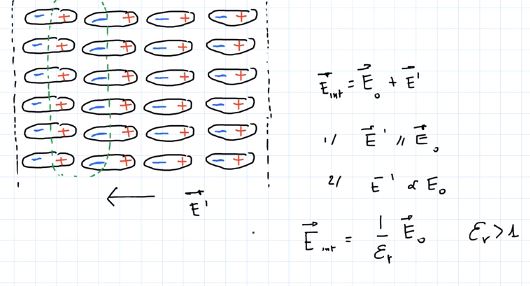 - + - + - + - +
- + - + - + - +
- + - + - + - +
- + - + - + - +
- + - + - + - +
- + - + - + - +
← E⃗'
E⃗int = E⃗₀ + E⃗'
1/ E⃗' // E⃗₀
2/ E' α E₀
E⃗int = 1/εr E⃗₀ εr > 1